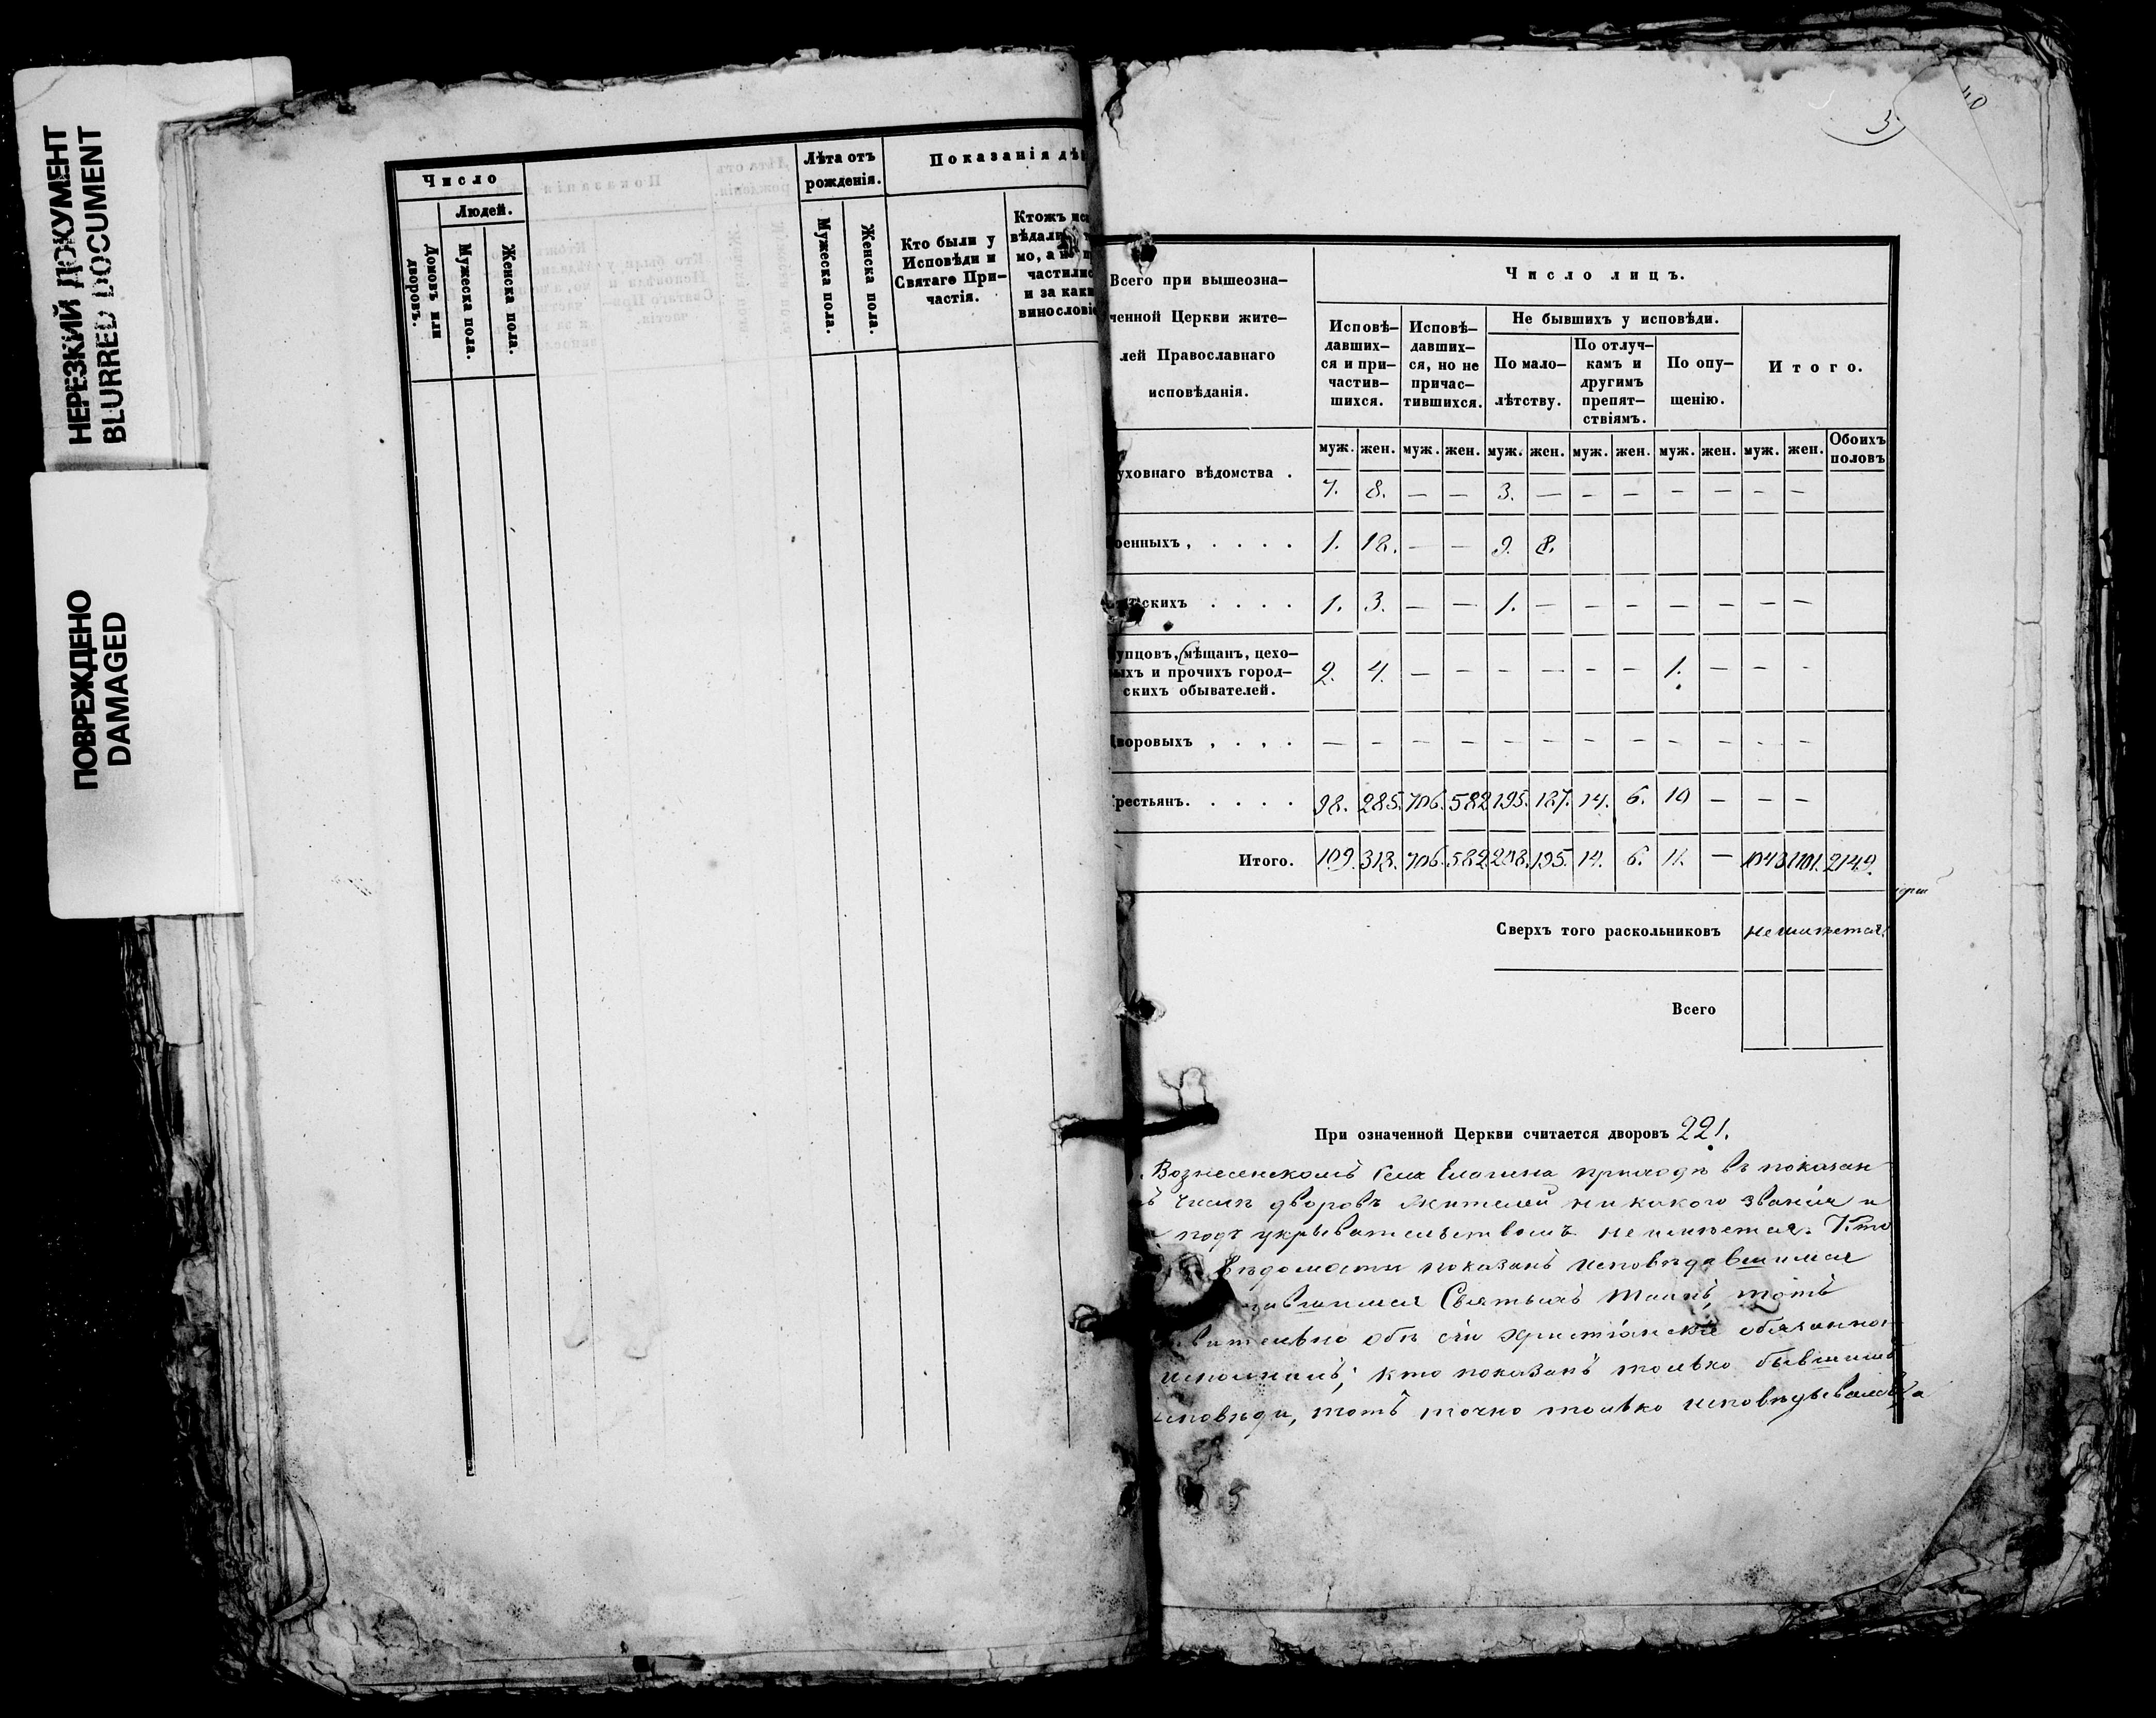 НЕРЕЗКИЙ ДОКУМЕНТ
BLURRED DOCUMENT
ПОВРЕЖДЕНО
DAMAGED
Число
Людей.
Домовъ или дворовъ.
Мужеска пола.
Женска пола.
Лѣта отъ рожденія.
Мужеска пола.
Женска пола.
Показанія дѣ
Кто были у
Исповѣди и
Святаго При-
частія.
Ктожъ
вѣдали
мо, а
частили
и за как
винословi
40
3
Всего при вышеозна-
ченной Церкви жите-
лей Православнаго
исповѣданія.
Число лицъ.
Исповѣ-
давших-
ся и при-
частив-
шихся.
Исповѣ-
давших-
ся, но не
причас-
тившихся.
Не бывшихъ у исповѣди.
По мало-
лѣтству.
По отлуч-
камъ и
другимъ
препят-
ствіямъ.
По опу-
щенію.
Итого.
муж. жен. муж. жен. муж. жен. муж. жен. муж. жен. муж. жен. Обоихъ половъ
уховнаго вѣдомства . 7. 8. — — 3. — — — — — — —
оенныхъ, . . . . 1. 18. — — 9. 8.
скихъ . . . . 1. 3. — — 1. — — — — — — —
упцовъ, мѣщанъ, цехо-
ыхъ и прочихъ город-
скихъ обывателей. 2. 4. — — — — — — 1. — — -
воровыхъ , . , . — - — — — — — — — — - —
рестьянъ. . . . . 98. 285. 706. 582 195. 187. 14. 6. 10 — — —
Итого. 109. 318. 706. 582. 208. 195. 14. 6. 11. — 1048 1101. 2149.
Сверхъ того раскольниковъ неимѣется.
Всего
При означенной Церкви считается дворовъ 221.
Вознесенскомъ села Елагина приходѣ въ показан
числѣ дворовъ жителей никакого званія и
подъ укрывательствомъ не имѣется. Кто
вѣдомости показанъ исповѣдавшимся
Святыхъ Таинъ, тотъ
обѣ сіи христіанскіе обязанно
исполнилъ; кто показанъ только бывшимъ
исповѣди, тотъ точно только исповѣдывался, а